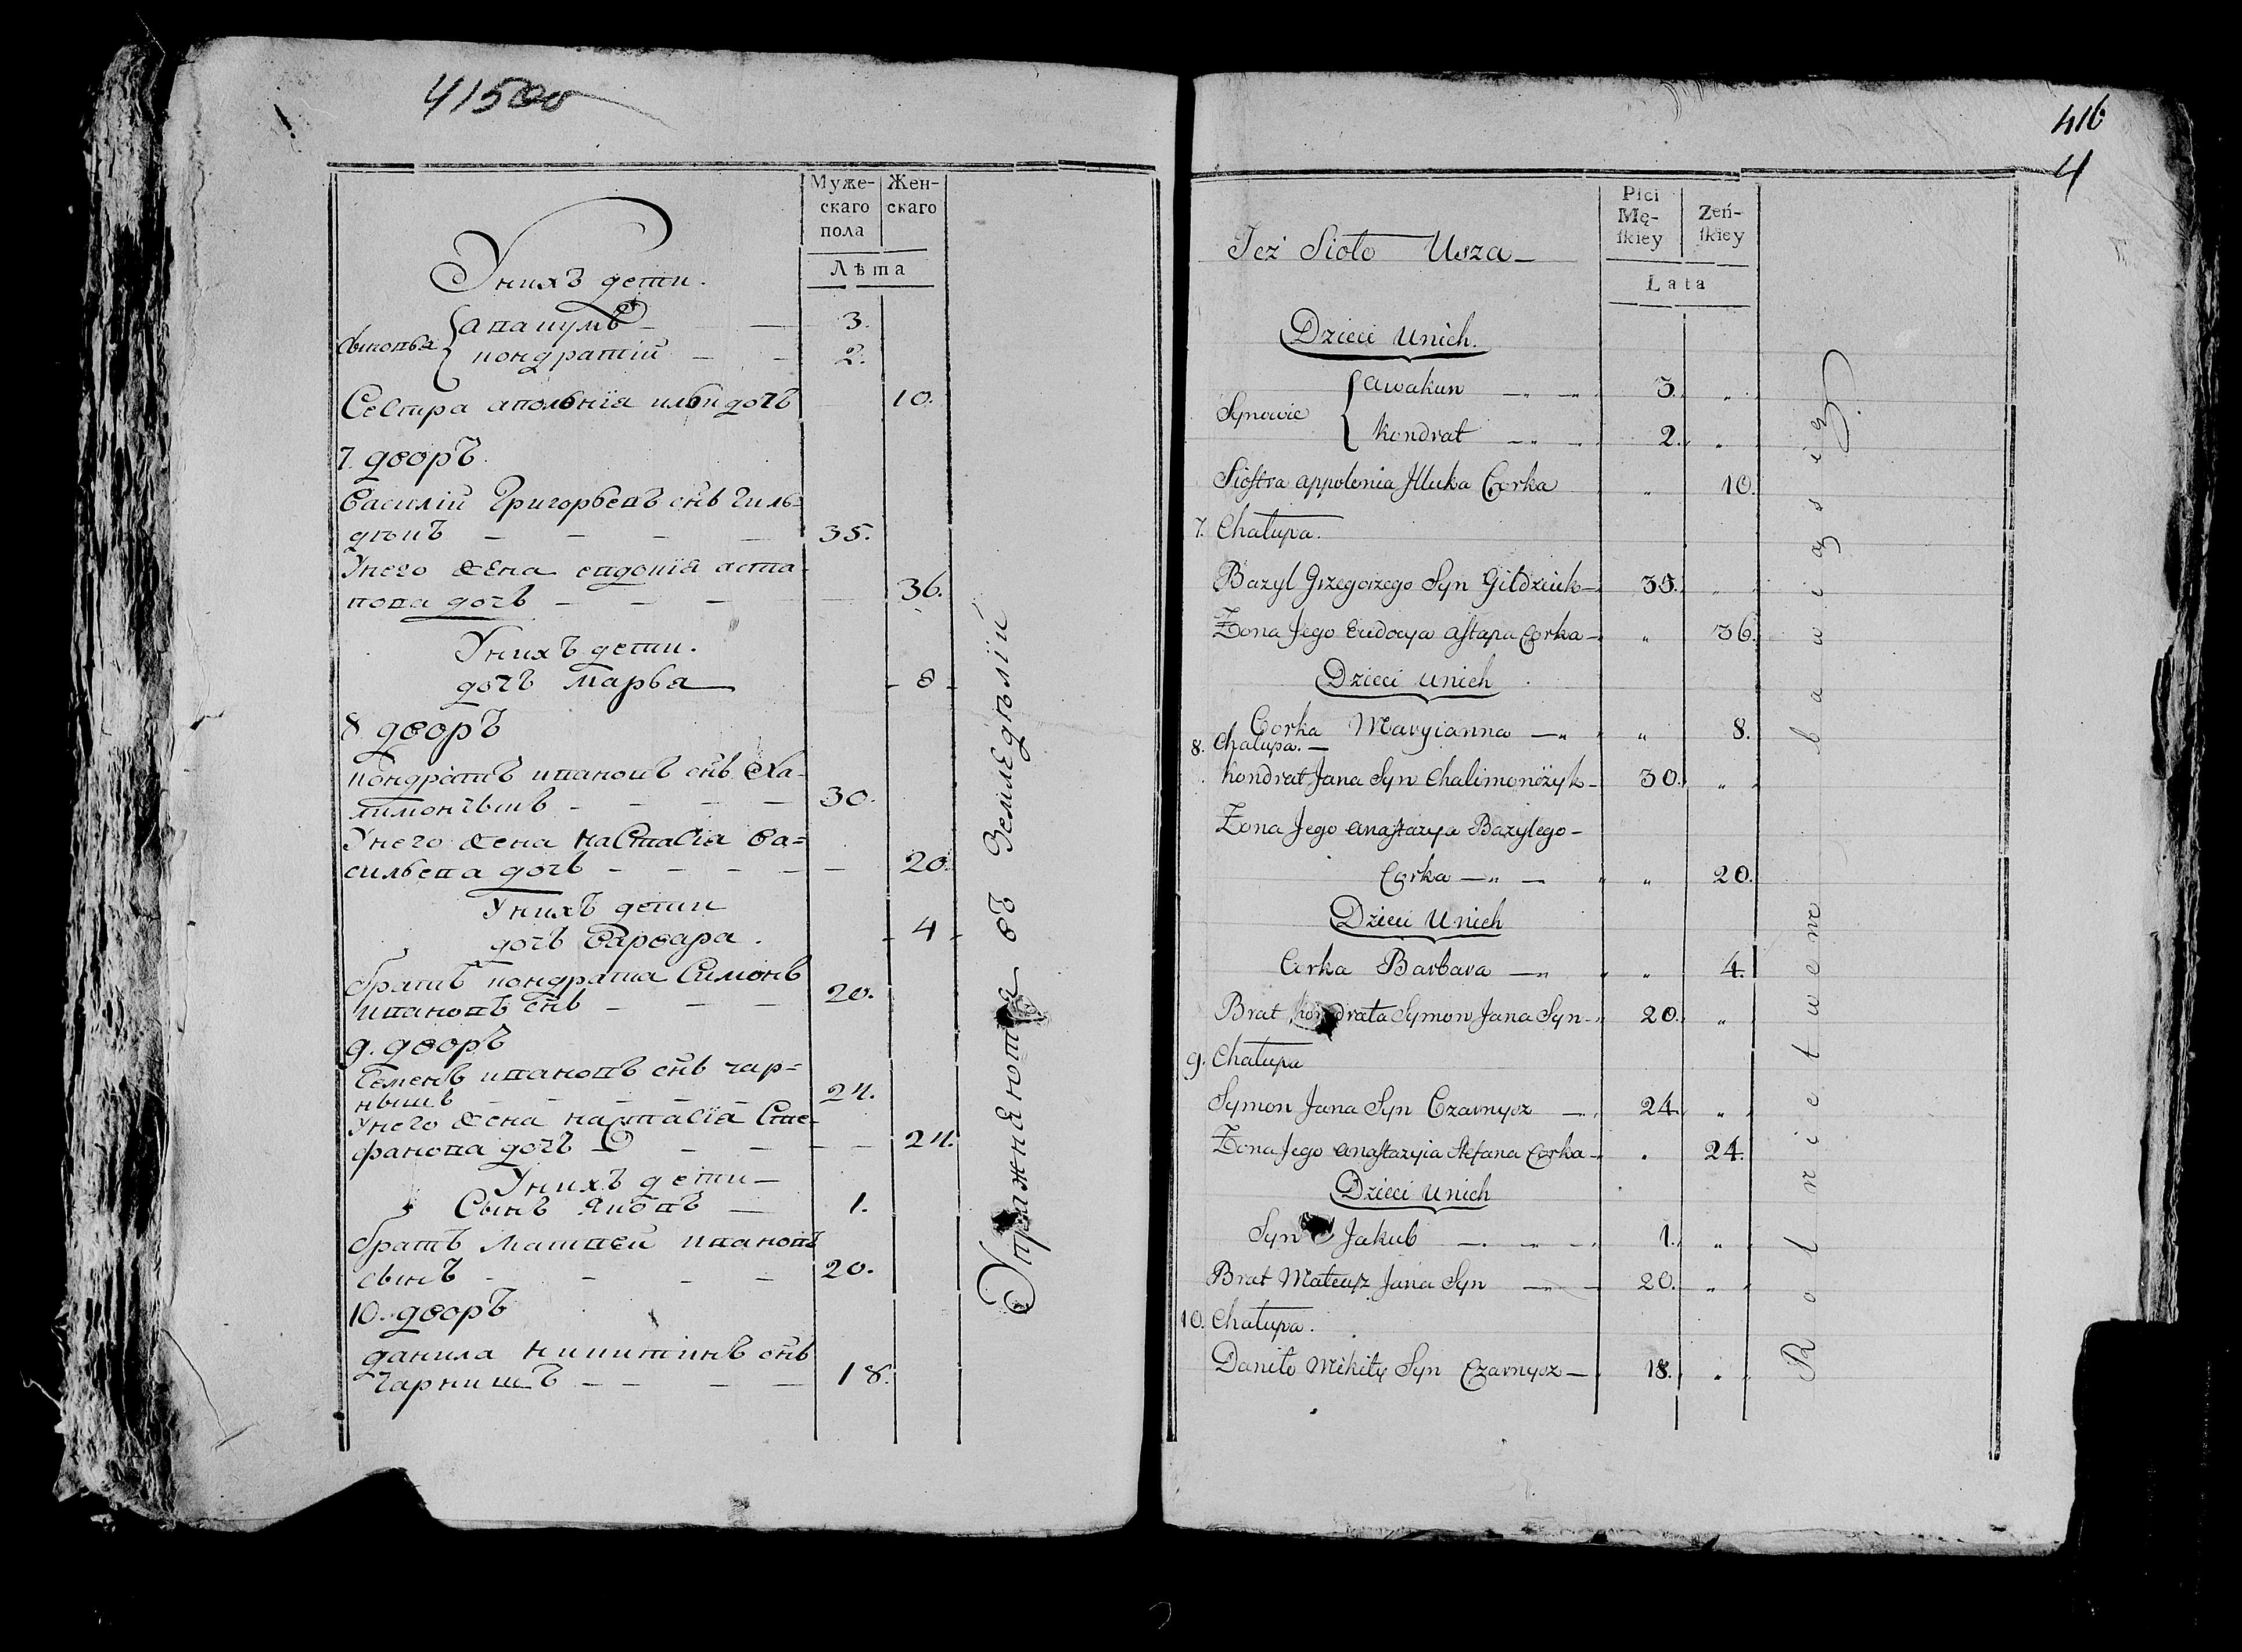 415об
Муже-
скаго
пола
Жен-
скаго
Лѣта
Унихъ дети.
Сыновья
авакумъ 3.
кондратій 2.
Сестра аполонія дочь 10.
7 дворъ
Василій Григорьевъ снъ Гиль-
дюкъ 35.
Унего жена евдокія аста-
пова дочь 36.
Унихъ дети.
дочь Марья 8
8 дворъ
кондратъ ивановъ снъ Ха-
лимончыкъ 30.
Унего жена настасія ва=
сильева дочь 20.
Унихъ дети
дочь варвара. 4
братъ кондрата Симонъ
ивановъ снъ 20.
9. дворъ
Семенъ ивановъ снъ чар=
нышъ 24.
Унего жена настасія Сте-
фанова дочь 24.
Унихъ дети
Сынъ яковъ 1.
братъ Матвей ивановъ
сынъ 20.
10. дворъ
данила никитинъ снъ
Чарнишъ 18.
Упражняются въ Земледѣлій
416
4
Też Sioło Usza
Płci
Mę-
ſkiey
Zeń-
ſkiey
Lata
Dzieci Unich.
Synowie
Awakun 3. "
Kondrat 2. "
Siostra Appolonia Corka " 10.
7. Chałupa.
Bazyl Grzegorzego Syn Gildziuk 35. "
Żona Jego Eudocya Astapa Corka " 36.
Dzieci Unich
Corka Maryianna " 8.
8. Chałupa.
Kondrat Jana Syn Chalimonczyk 30. "
Żona Jego Anastazya Bazylego
Corka " 20.
Dzieci Unich
Corka Barbara " 4.
Brat Kondrata Symon Jana Syn 20. "
9. Chałupa
Symon Jana Syn Czarnysz 24. "
Żona Jego Anastazyia Stefana Corka " 24.
Dzieci Unich
Syn Jakub 1. "
Brat Mateusz Jana Syn 20. "
10. Chałupa.
Daniło Mikity Syn Czarnysz 18. "
Rolnictwem bawią się